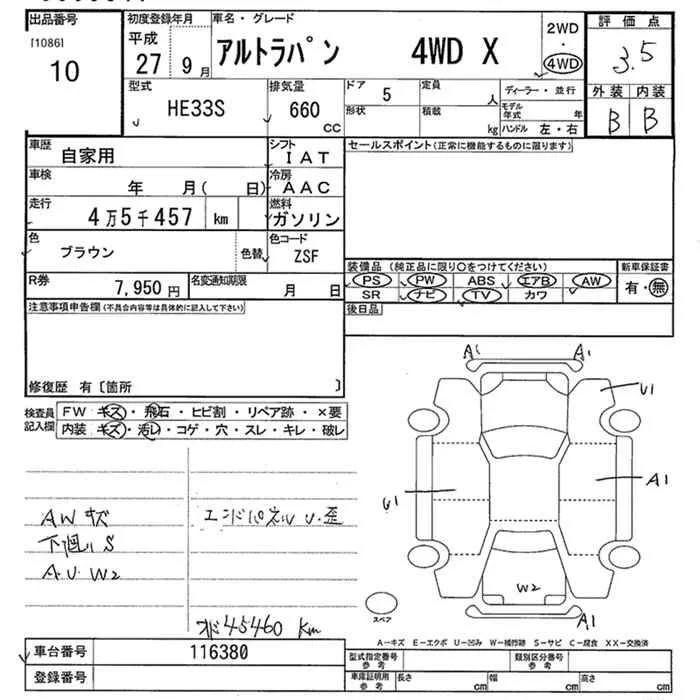 出品番号 初度登録年月 車名・グレード 2WD 評価点
[1086] 平成 アルトラパン 4WD X ・ 3.5
10 27 9月 4WD
型式 排気量 ドア 5 定員 人 ディーラー・並行 外装 内装
HE33S 660 CC 形状 積載 kg モデル年式 年 B B
ハンドル 左・右
車歴 自家用 シフト IAT セールスポイント(正常に機能するものに限ります)
車検 年 月( 日) 冷房 AAC
走行 4万5千457 km 燃料 ガソリン
色 ブラウン 色替 色コード ZSF
装備品(純正品に限り○をつけてください) 新車保証書
R券 7,950円 名変通知期限 月 日 PS PW ABS エアB AW 有・無
SR ナビ TV カワ
注意事項申告欄(不具合内容等は具体的に記入して下さい) 後日品
修復歴 有〔箇所 〕
A1 A1
U1
検査員 FW キズ・飛石・ヒビ割・リペア跡・×要
記入欄 内装 キズ・汚レ・コゲ・穴・スレ・キレ・破レ
U1 A1
AWキズ エンドパネルU・歪
下廻りS
A.U.W2
W2
スペア
A1
オド45460km
A-キズ E-エクボ U-凹み W-補修跡 S-サビ C-腐食 XX-交換済
車台番号 116380 型式指定番号 参考 類別区分番号 参考
登録番号 車庫証明用 参考 長さ cm 幅 cm 高さ cm